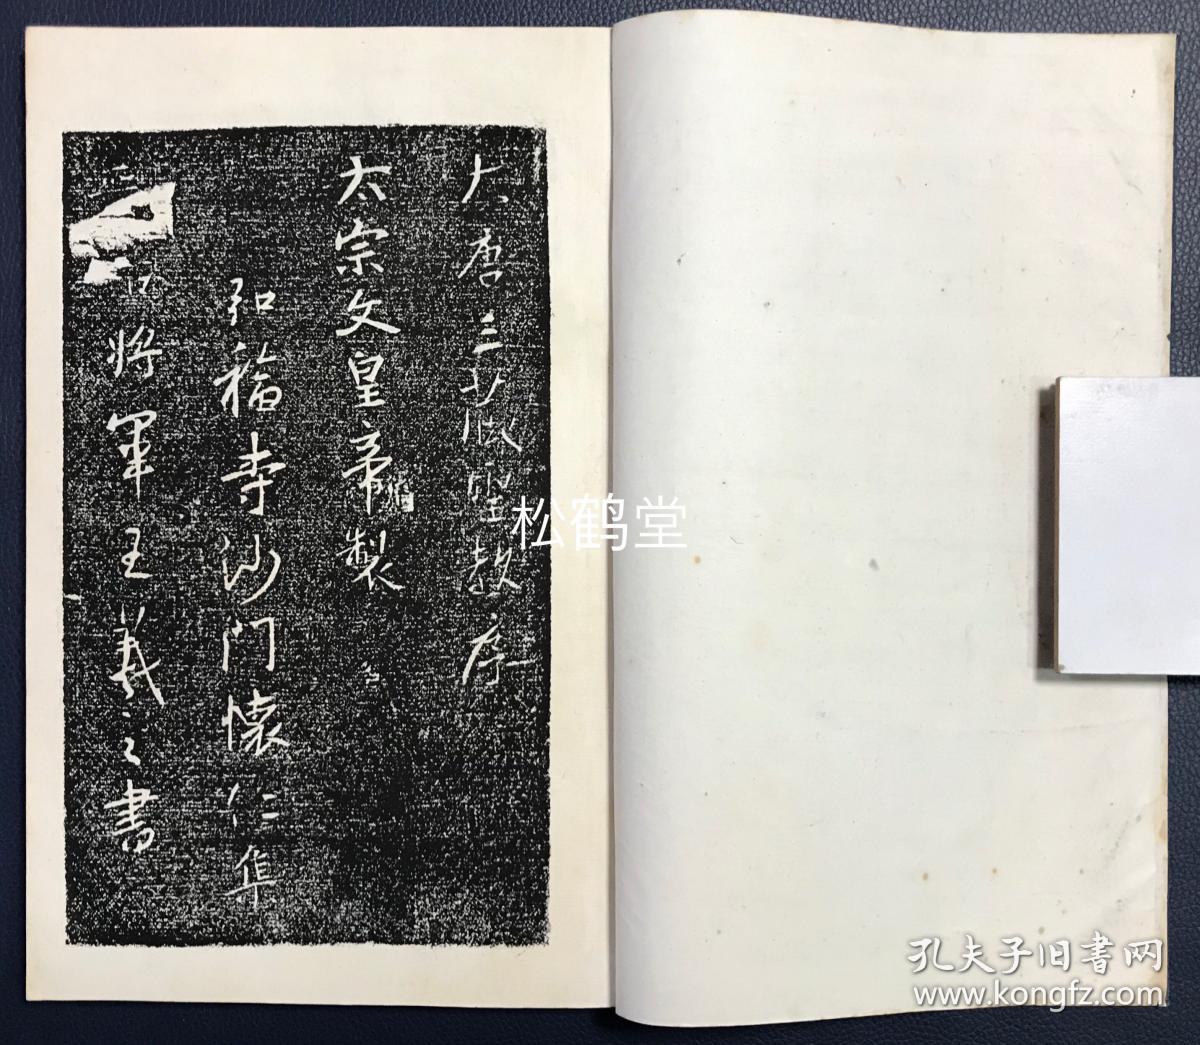 大唐三藏聖教序
太宗文皇帝製
弘福寺沙門懷仁集
將軍王羲之書
松鹤堂
孔夫子旧書网
www.kongfz.com